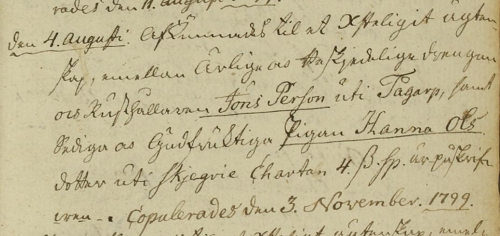 rades den 11. Augusti 1799.
den 4. Augusti. Afkunnades til et Xsteligit ägten-
skap, emellan Ärlige och Beskjedelige Drengen
och Rusthållaren Jöns Person uti Tagarp, samt
Sediga och Gudfruktiga Pigan Hanna Ols
dotter uti Skjegrie Charten 4. ß. Sp. är påskrif
wen - . Copulerades den 3. November. 1799.
Xsteligit ägtenskap, emel-